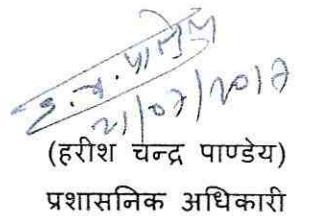 ह. च. पाण्डेय
21/07/2017
(हरीश चन्द्र पाण्डेय)
प्रशासनिक अधिकारी